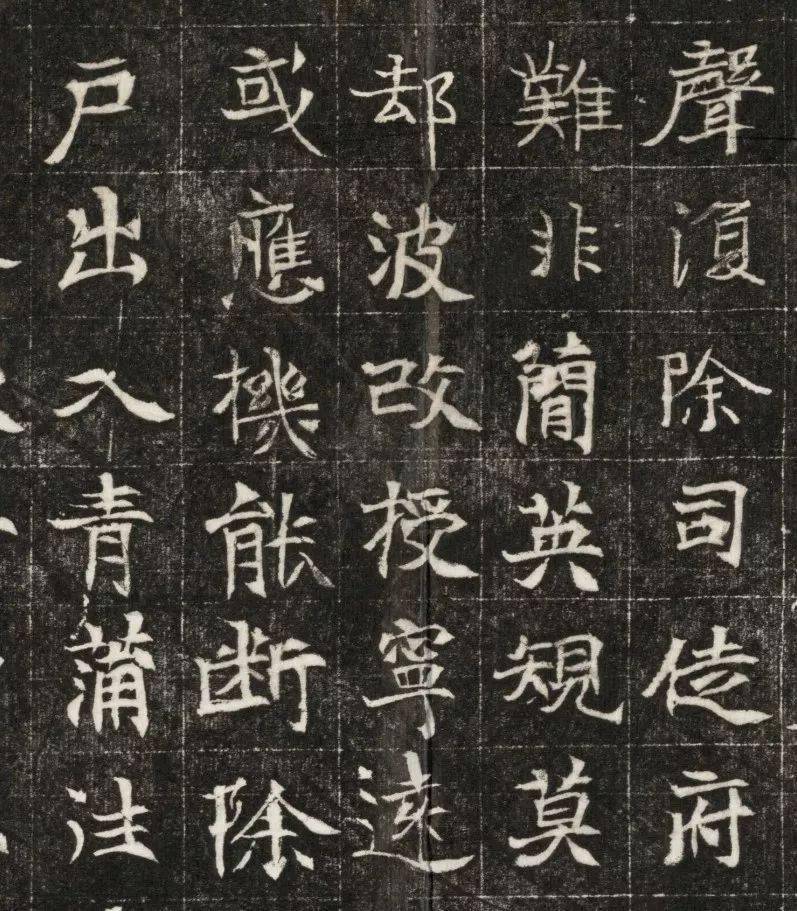 聲復除司徒府
難非簡英規莫
却波改授寧遠
或應機能斷除
戶出入青蒲注